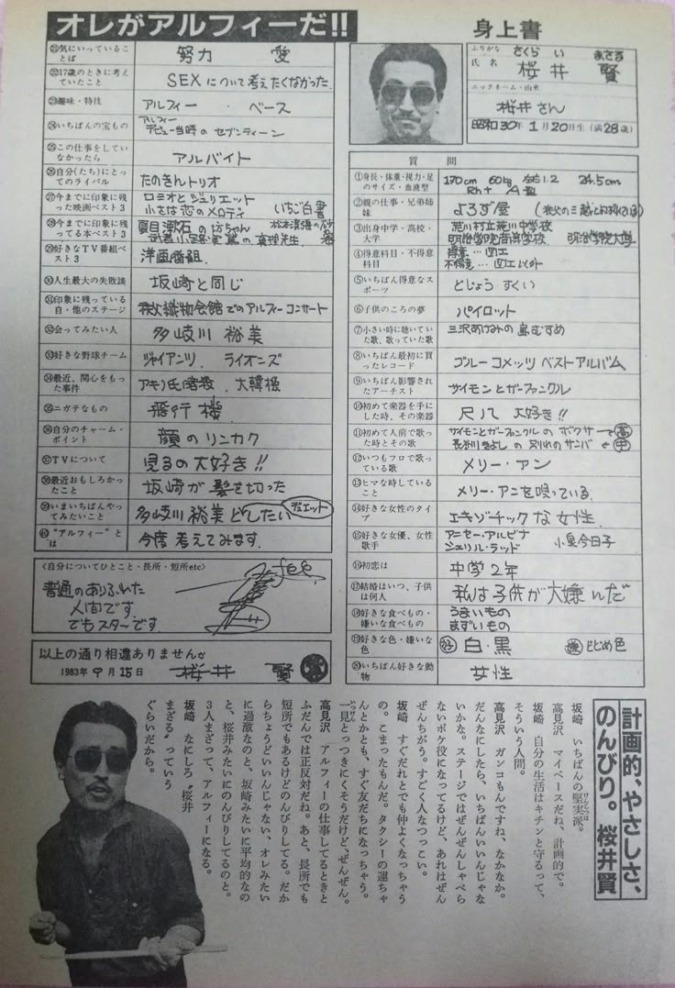 オレがアルフィーだ!!
身上書
ふりがな さくら い まさる
氏名 桜井 賢
ニックネーム・由来
桜井さん
昭和30年1月20日生(満28歳)
質 問
①身長・体重・視力・足のサイズ・血液型 170cm 60kg 左右1.2 24.5cm Rh+ A型
②親の仕事・兄弟姉妹 よろず屋
③出身中学・高校・大学 荒川村立荒川中学校 明治学院東村山高等学校 明治学院大学
④得意科目・不得意科目 得意…図工
不得意…図工以外
⑤いちばん得意なスポーツ どじょうすくい
⑥子供のころの夢 パイロット
⑦小さい時に聴いていた歌、歌っていた歌 三沢あけみの島むすめ
⑧いちばん最初に買ったレコード ブルーコメッツ ベストアルバム
⑨いちばん影響されたアーチスト サイモンとガーファンクル
⑩初めて楽器を手にした時、その楽器 尺八 大好き!!
⑪初めて人前で歌った時とその歌 サイモンとガーファンクルのボクサー 高
長谷川きよしの別れのサンバ 中
⑫いつもフロで歌っている歌 メリー・アン
⑬ヒマな時していること メリー・アンを唄っている。
⑭好きな女性のタイプ エキゾーチックな女性
⑮好きな女優、女性歌手 アニセー・アルビナ
ジェリル・ラッド 小泉今日子
⑯初恋は 中学2年
⑰結婚はいつ、子供は何人 私は子供が大嫌いだ
⑱好きな食べもの・嫌いな食べもの うまいもの
まずいもの
⑲好きな色・嫌いな色 好 白・黒 嫌 どどめ色
⑳いちばん好きな動物 女性
㉑気にいっていることば 努力 愛
㉒17歳のときに考えていたこと SEXについて考えたくなかった
㉓趣味・特技 アルフィー・ベース
㉔いちばんの宝もの アルフィーデビュー当時のセブンティーン
㉕この仕事をしていなかったら アルバイト
㉖自分(たち)にとってのライバル たのきんトリオ
㉗今までに印象に残った映画ベスト3 ロミオとジュリエット
小さな恋のメロディ いちご白書
㉘今までに印象に残ってる本ベスト3 夏目漱石の坊ちゃん
武者小路実篤の真理先生
㉙好きなTV番組ベスト3 洋画番組
㉚人生最大の失敗談 坂崎と同じ
㉛印象に残っている自・他のステージ 秩父織物会館でのアルフィーコンサート
㉜会ってみたい人 多岐川裕美
㉝好きな野球チーム ジャイアンツ、ライオンズ
㉞最近、関心をもった事件 アキノ氏暗殺、大韓機
㉟ニガテなもの 飛行機
㊱自分のチャーム・ポイント 顔のリンカク
㊲TVについて 見るの大好き!!
㊳最近おもしろかったこと 坂崎が髪を切った
㊴いまいちばんやってみたいこと 多岐川裕美とどしたい デュエット
㊵"アルフィー"とは 今度考えてみます。
〈自分についてひとこと・長所・短所etc〉
普通のありふれた
人間です
でもスターです
以上の通り相違ありませんか
1983年9月15日 桜井 賢
計画的、やさしさ、
のんびり。桜井賢
坂崎 いちばんの堅実派。
高見沢 マイペースだね、計画的で。
坂崎 自分の生活はキチンと守るって、
そういう人間。
高見沢 ガンコもんですね、なかなか。
だんなにしたら、いちばんいいんじゃな
いかな。ステージではぜんぜんしゃべら
ないボケ役になってるけど、あれはぜん
ぜんちがう。すごく人なつっこい。
坂崎 すぐだれとでも仲よくなっちゃう
の。こまったもんだ。タクシーの運ちゃ
んとかとも、すぐ友だちになっちゃう。
一見とっつきにくそうだけど、ぜんぜん。
高見沢 アルフィーの仕事してるときと
ふだんでは正反対だね。あと、長所でも
短所でもあるけどのんびりしてる。だか
らちょうどいいんじゃない、オレみたい
に過激なのと、坂崎みたいに平均的なの
と、桜井みたいにのんびりしてるのと。
3人まざって、アルフィーになる。
坂崎 なにしろ〝桜井
まさる〟っていう
ぐらいだから。